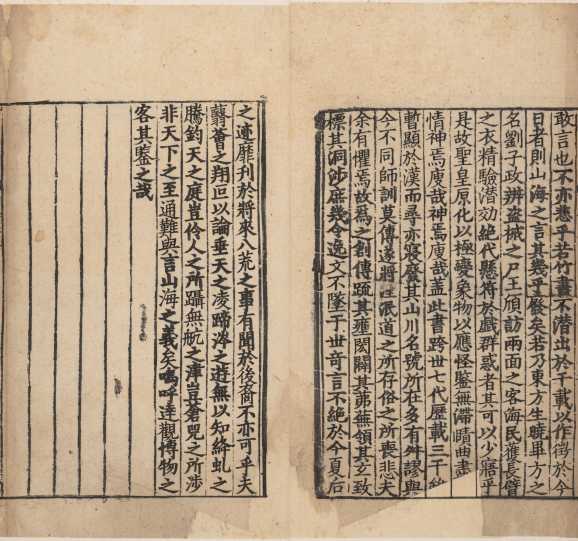 敢言也不亦悲乎若竹書不潛出於千載以作徵於今
日者則山海之言其幾乎廢矣若乃東方生曉畢方之
名劉子政辨盜械之尸王頎訪兩面之客海民獲長臂
之衣精驗潛効絶代懸符於戲群惑者其可以少寤乎
是故聖皇原化以極變象物以應怪鑒無滯賾曲盡
情神焉廋哉神焉廋哉盖此書跨世七代歷載三千雖
暫顯於漢而尋亦寢廢其山川名號所在多有舛謬與
今不同師訓莫傳遂將湮泯道之所存俗之所喪悲夫
余有懼焉故爲之創傳疏其壅閡闢其茀蕪領其玄致
標其洞涉庶幾令逸文不墜于世奇言不絶於今夏后
之迹靡刋於將來八荒之事有聞於後裔不亦可乎夫
蘙薈之翔叵以論垂天之凌蹄涔之遊無以知絳虬之
騰鈞天之庭豈伶人之所躡無航之津豈蒼兕之所涉
非天下之至通難與言山海之義矣嗚呼達觀博物之
客其鑒之哉